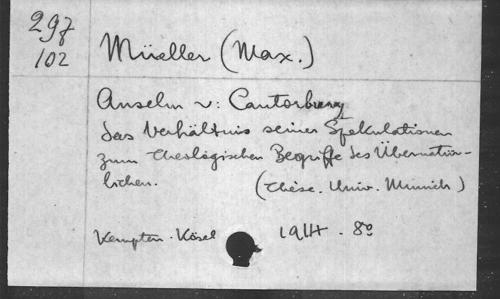 297
102
Müeller (Max.)
Anselm v: Cantorbury
das Verhältnis seiner Spekulationen
zum theologischen Begriffe des Übernatür-
lichen. (Thèse. Univ. Munich)
Kempten. Kösel 1914. 8º